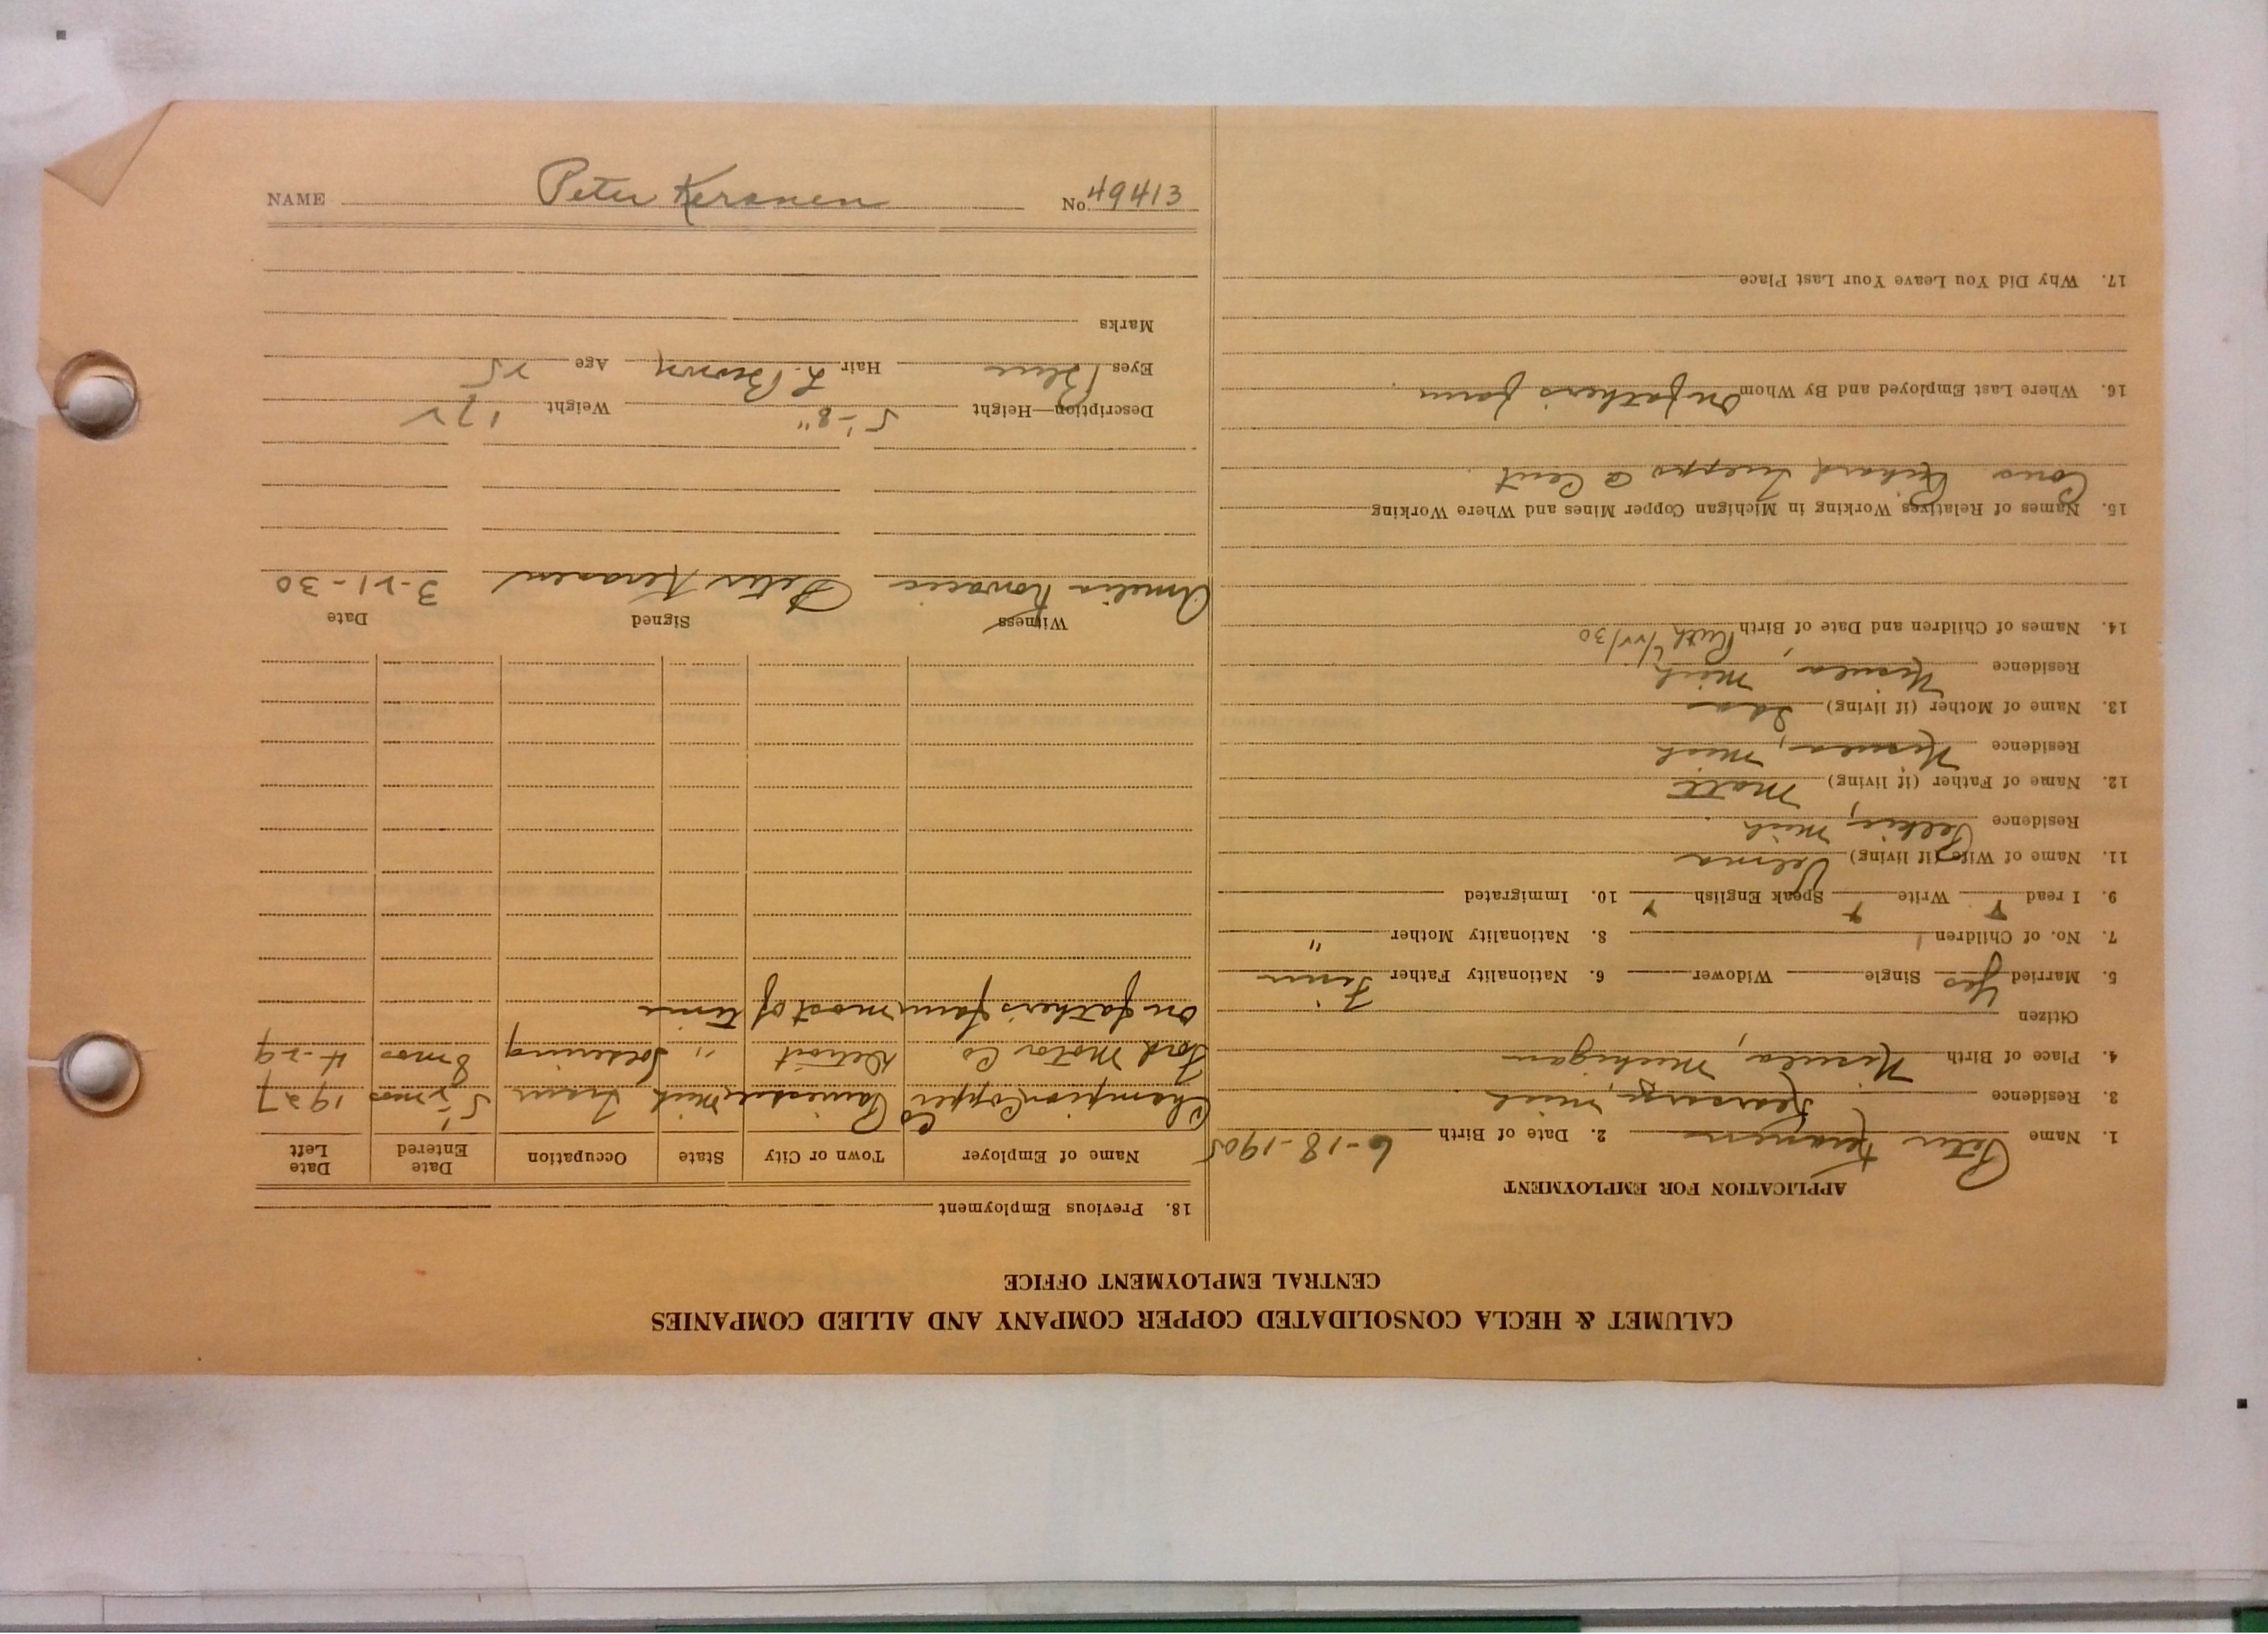 CALUMET & HECLA CONSOLIDATED COPPER COMPANY AND ALLIED COMPANIES
CENTRAL EMPLOYMENT OFFICE
APPLICATION FOR EMPLOYMENT
1. Name Peter Keranen 2. Date of Birth 6-18-1905
3. Residence Kearsarge, Mich
4. Place of Birth Nisula, Michigan
Citizen
5. Married Yes Single Widower 6. Nationality Father Finn
7. No. of Children 1 8. Nationality Mother "
9. I read Y Write Y Speak English Y 10. Immigrated
11. Name of Wife (if living) Velma
Residence Pelkie, Mich
12. Name of Father (if living) Matt
Residence Nisula, Mich
13. Name of Mother (if living) Ida
Residence Nisula, Mich
14. Names of Children and Date of Birth Ruth /22/30
15. Names of Relatives Working in Michigan Copper Mines and Where Working
Cous Richard @ Cent
16. Where Last Employed and By Whom On father's farm
17. Why Did You Leave Your Last Place
18. Previous Employment
Name of Employer Town or City State Occupation Date Entered Date Left
Champion Copper Co Painesdale Mich Tram 5 mos 1927
Ford Motor Co. Detroit " 8 mos 4-29
On father's farm most of time
Witness Signed Date
Amelia Peter Keranen 3-21-30
Description—Height 5'-8" Weight 172
Eyes Blue Hair L. Brown Age 25
Marks
NAME Peter Keranen No. 49413